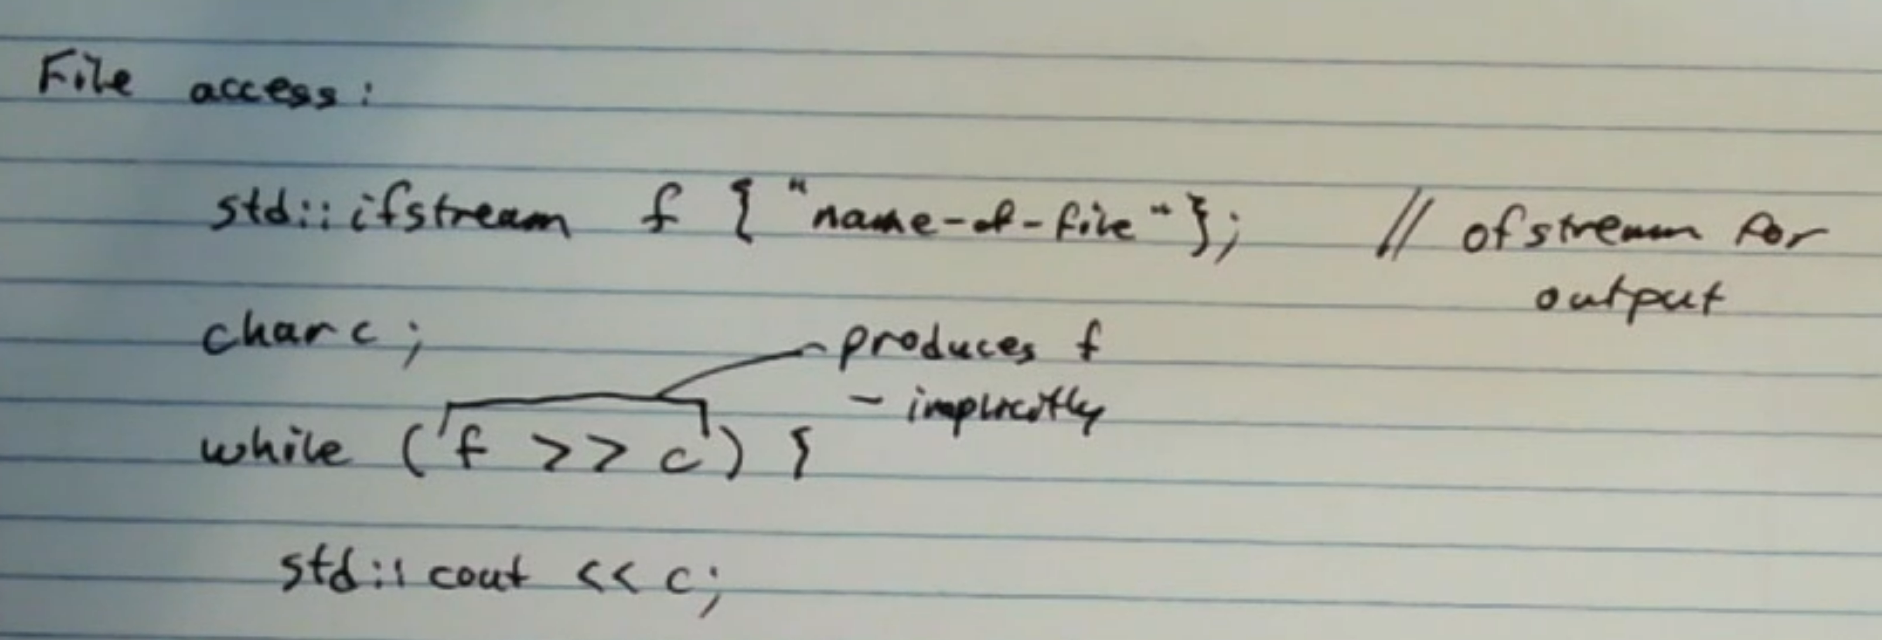 File access:
std::ifstream f { "name-of-file" }; // ofstream for
output
char c;
produces f
- implicitly
while (f >> c) {
std::cout << c;